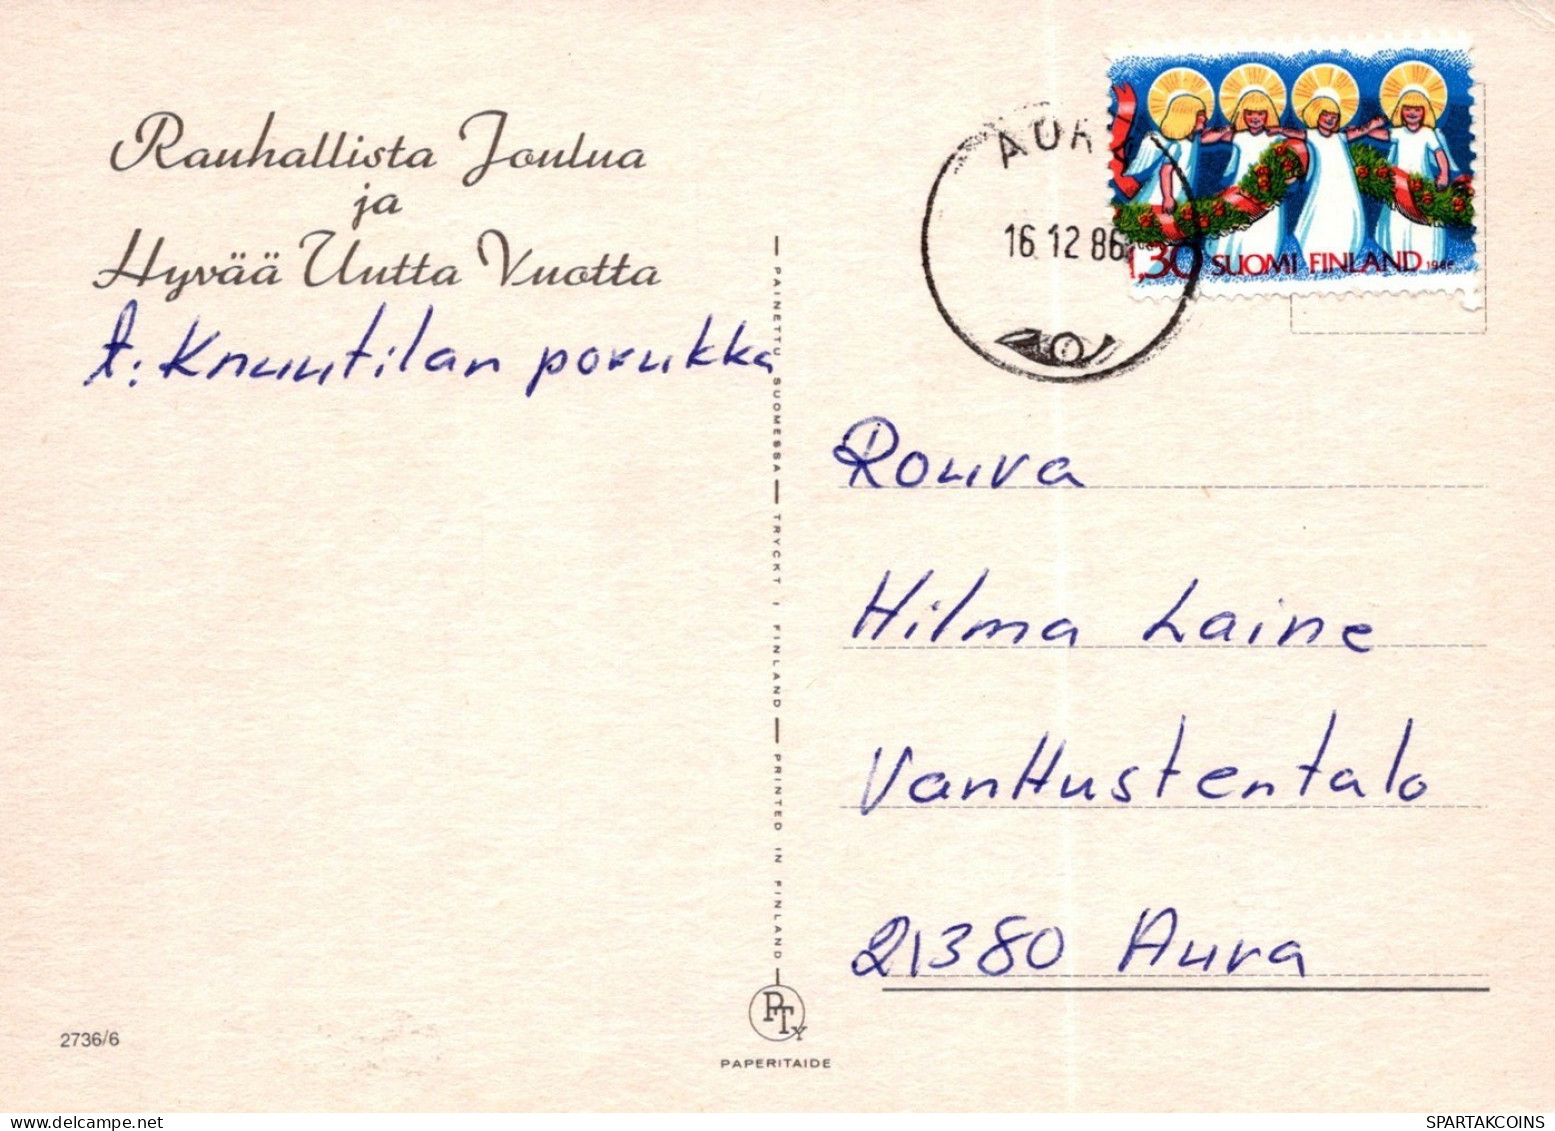 Rauhallista Joulua
ja
Hyvää Uutta Vuotta
t: Knuutilan porukka
1,30 SUOMI FINLAND 1986
16.12.86
Rouva
Hilma Laine
VanHustentalo
21380 Aura
PAINETTU SUOMESSA — TRYCKT I FINLAND — PRINTED IN FINLAND
PTy
PAPERITAIDE
2736/6
SPARTAKCOINS
www.delcampe.net